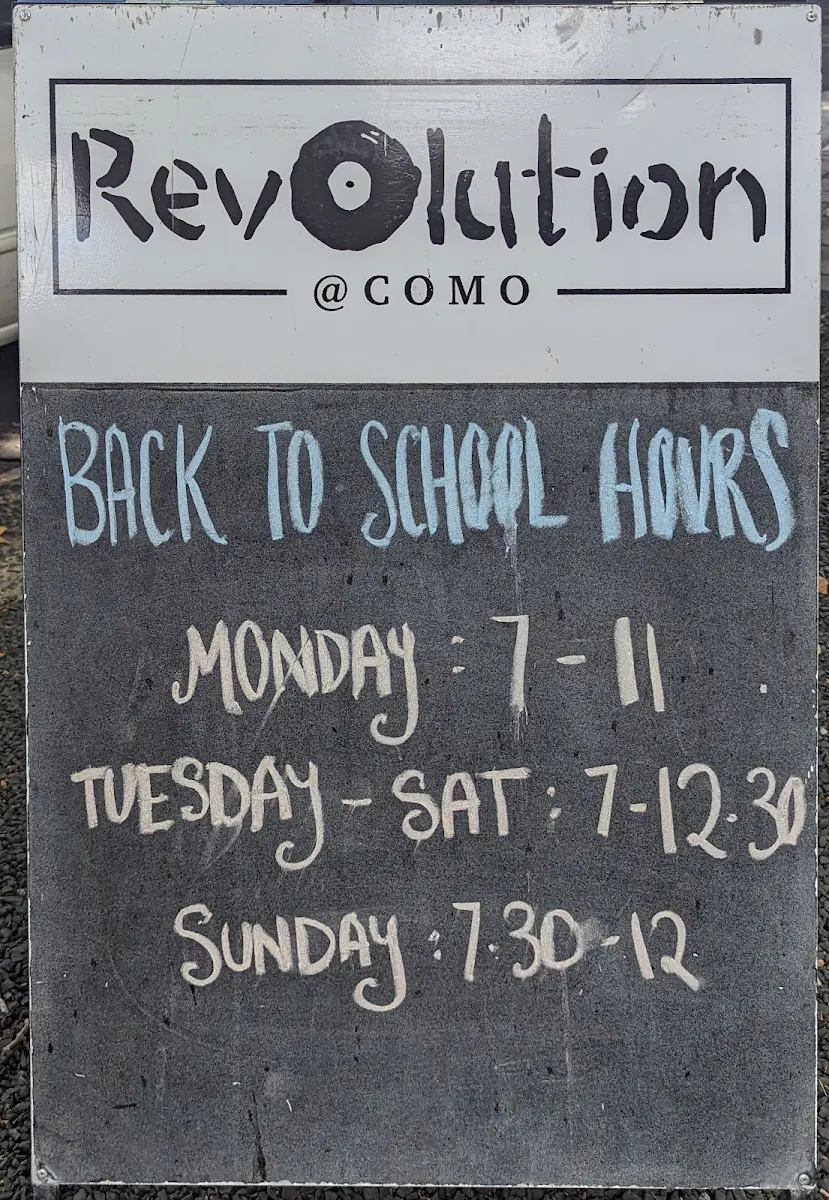 Revolution
@COMO
BACK TO SCHOOL HOURS
MONDAY : 7 - 11
TUESDAY - SAT : 7-12.30
SUNDAY : 7.30-12